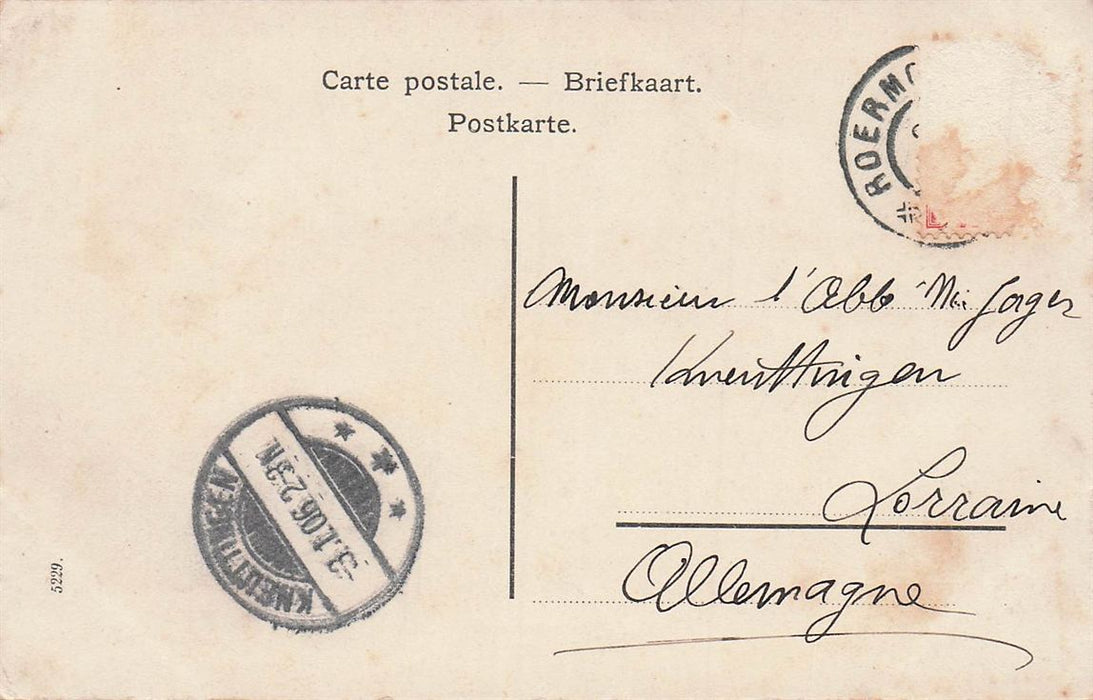 Carte postale. — Briefkaart.
Postkarte.
ROERMO
Monsieur l'Abb
Kneuttingen
Lorraine
Allemagne
KNEUTTINGEN
3.1.06.2-3N.
5229.